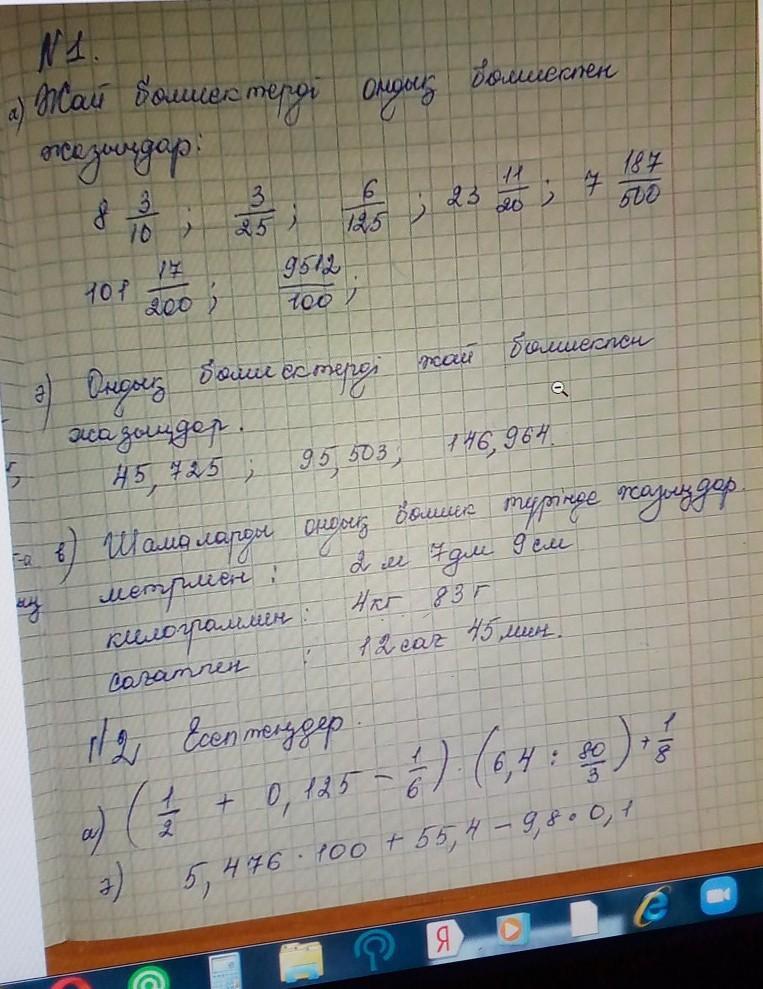 №1.
а) Жай бөлшектерді ондық бөлшекпен
жазыңдар:
8 3/10 ; 3/25 ; 6/125 ; 23 11/20 ; 7 187/500
101 17/200 ; 9512/100 ;
ә) Ондық бөлшектерді жай бөлшекпен
жазыңдар.
45,725 ; 95,503 ; 146,964.
в) Шамаларды ондық бөлшек түрінде жазыңдар.
метрмен : 2 м 7дм 9см
килограммен : 4кг 83г
сағатпен : 12сағ 45мин.
№2, Есептеңдер.
а) (1/2 + 0,125 − 1/6) · (6,4 : 80/3) + 1/8
ә) 5,476 · 100 + 55,4 − 9,8 · 0,1
Я